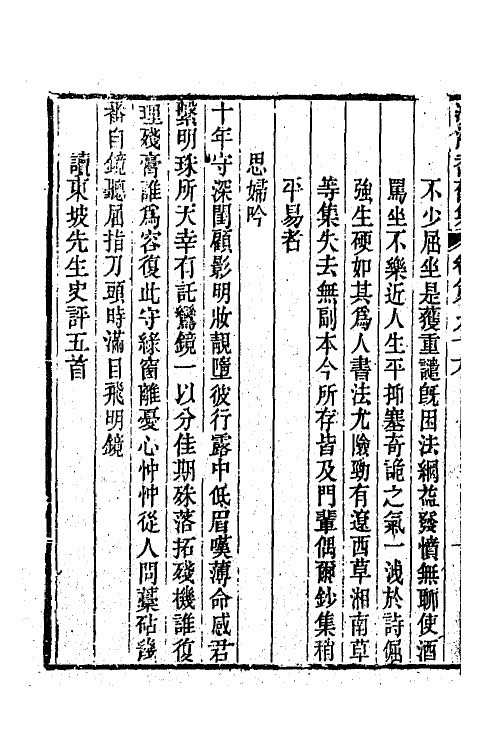 不少屈坐是獲重譴旣困法綱葢發憤無聊使酒
罵坐不樂近人生平抑塞奇詭之氣一洩於詩倔
強生硬如其爲人書法尤險勁有遼西草湘南草
等集失去無副本今所存皆及門輩偶爾鈔集稍
平易者
思婦吟
十年守深閨顧影明妝靚墮彼行露中低眉嘆薄命感君
繫明珠所天幸有託鸞鏡一以分佳期殊落拓殘機誰復
理殘膏誰爲容復此守綠窗離憂心忡忡從人問藁砧錢
番自鏡聽屈指刀頭時滿目飛明鏡
讀東坡先生史評五首